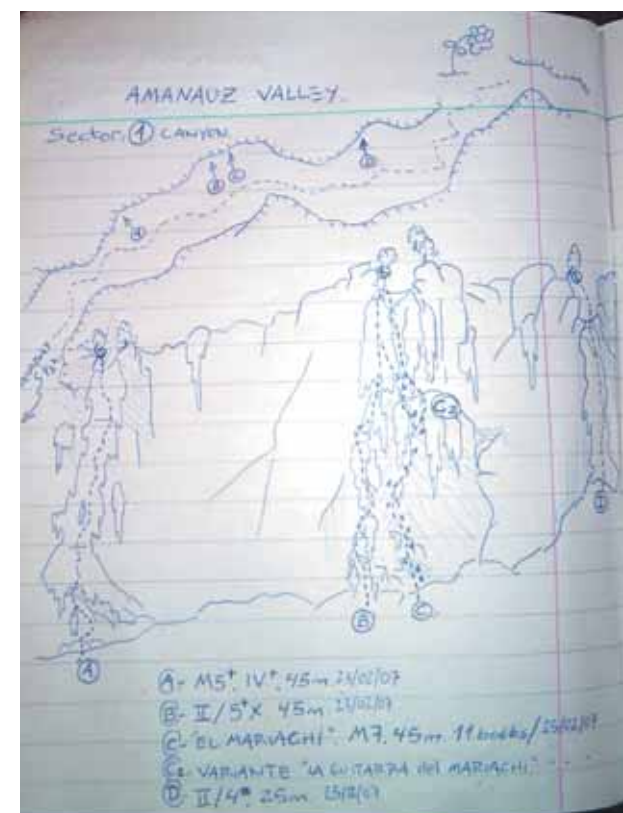 AMANAUZ VALLEY.
Sector ① CANYON
A
B
C
D
C2
D
B
C
A
Ⓐ- M5+. IV+. 45m 23/02/07
Ⓑ- II/5+X 45m 23/02/07
Ⓒ- "EL MARIACHI". M7. 45m. 11 bolts/25/02/07
C2 VARIANTE "LA GUITARRA del MARIACHI."
Ⓓ- II/4+. 25m.